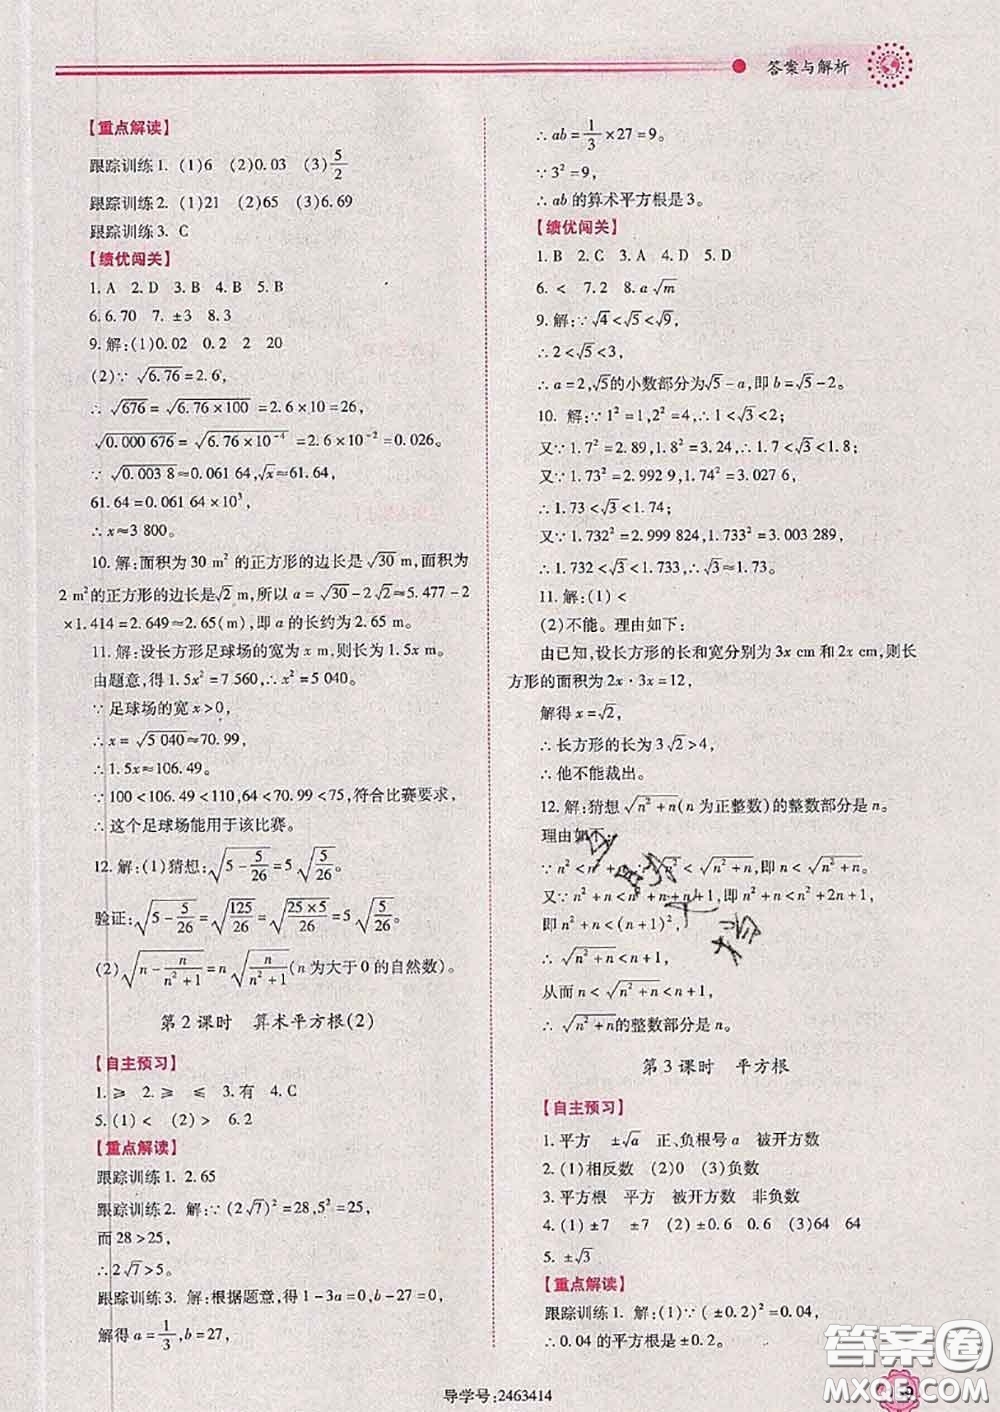 答案与解析
【重点解读】
跟踪训练1. (1)6 (2)0.03 (3)5/2
跟踪训练2. (1)21 (2)65 (3)6.69
跟踪训练3. C
【绩优闯关】
1. A 2. D 3. B 4. B 5. C
6. 6.70 7. ±3 8. 3
9. 解:(1)0.02 0.2 2 20
(2)∵ √6.76=2.6,
∴ √676=√(6.76×100)=2.6×10=26,
√0.000 676=√(6.76×10⁻⁴)=2.6×10⁻²=0.026。
∵ √0.003 8≈0.061 64,√x≈61.64,
61.64=0.061 64×10³,
∴ x≈3 800。
10. 解:面积为30 m² 的正方形的边长是√30 m,面积为
2 m²的正方形的边长是√2 m,所以 a=√30-2√2≈5.477-2
×1.414=2.649≈2.65(m),即 a 的长约为 2.65 m。
11. 解:设长方形足球场的宽为 x m,则长为 1.5x m。
由题意,得 1.5x²=7 560,∴ x²=5 040。
∵ 足球场的宽 x>0,
∴ x=√5 040≈70.99,
∴ 1.5x≈106.49。
∵ 100<106.49<110,64<70.99<75,符合比赛要求,
∴ 这个足球场能用于该比赛。
12. 解:(1)猜想:√(5-5/26)=5√(5/26)
验证:√(5-5/26)=√(125/26)=√(25×5/26)=5√(5/26)。
(2)√(n-n/(n²+1))=n√(n/(n²+1))(n 为大于0的自然数)。
第2课时 算术平方根(2)
【自主预习】
1. ⩾ 2. ⩾ ⩽ 3. 有 4. C
5. (1)< (2)> 6. 2
【重点解读】
跟踪训练1. 2.65
跟踪训练2. 解:∵(2√7)²=28,5²=25,
而 28>25,
∴ 2√7>5。
跟踪训练3. 解:根据题意,得 1-3a=0,b-27=0,
解得 a=1/3,b=27,
∴ ab=1/3×27=9。
∵ 3²=9,
∴ ab 的算术平方根是 3。
【绩优闯关】
1. B 2. C 3. A 4. D 5. D
6. < 7. 2 8. a√m
9. 解:∵ √4<√5<√9,
∴ 2<√5<3,
∴ a=2,√5的小数部分为√5-a,即 b=√5-2。
10. 解:∵ 1²=1,2²=4,∴ 1<√3<2;
又∵ 1.7²=2.89,1.8²=3.24,∴ 1.7<√3<1.8;
又∵ 1.73²=2.992 9,1.74²=3.027 6,
∴ 1.73<√3<1.74;
又∵ 1.732²=2.999 824,1.733²=3.003 289,
∴ 1.732<√3<1.733,∴ √3≈1.73。
11. 解:(1)<
(2)不能。理由如下:
由已知,设长方形的长和宽分别为 3x cm 和 2x cm,则长
方形的面积为 2x·3x=12,
解得 x=√2,
∴ 长方形的长为 3√2>4,
∴ 他不能裁出。
12. 解:猜想√(n²+n)(n 为正整数)的整数部分是 n。
理由如下:
∵ n²<n²+n,∴ √n²<√(n²+n),即 n<√(n²+n)。
又∵ n²+n<n²+n+n+1,即 n²+n<n²+2n+1,
即 n²+n<(n+1)²,
∴ √(n²+n)<n+1,
从而 n<√(n²+n)<n+1,
∴ √(n²+n)的整数部分是 n。
第3课时 平方根
【自主预习】
1. 平方 ±√a 正、负根号a 被开方数
2. (1)相反数 (2)0 (3)负数
3. 平方根 平方 被开方数 非负数
4. (1)±7 ±7 (2)±0.6 0.6 (3)64 64
5. ±√3
【重点解读】
跟踪训练1. 解:(1)∵(±0.2)²=0.04,
∴ 0.04的平方根是±0.2。
导学号:2463414
答案圈
MXQE.COM